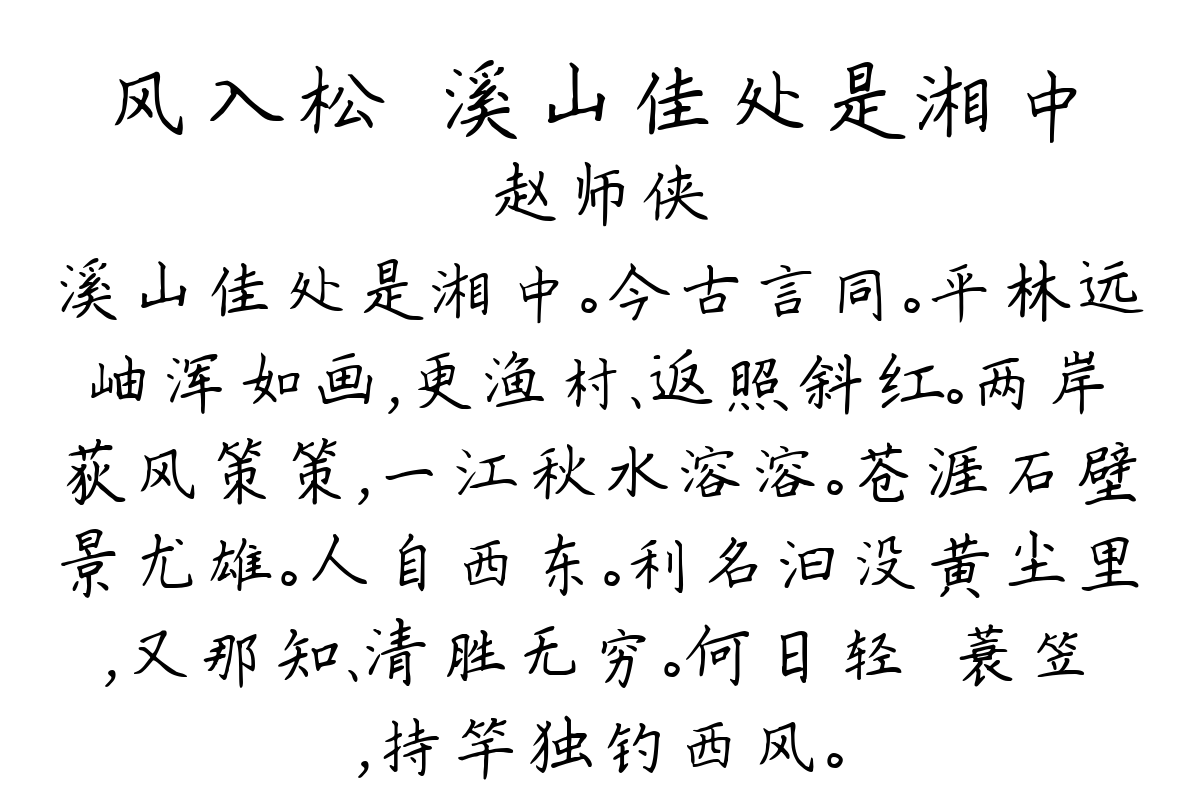 风入松 溪山佳处是湘中
赵师侠
溪山佳处是湘中。今古言同。平林远
岫浑如画,更渔村、返照斜红。两岸
荻风策策,一江秋水溶溶。苍涯石壁
景尤雄。人自西东。利名汩没黄尘里
,又那知、清胜无穷。何日轻 蓑笠
,持竿独钓西风。